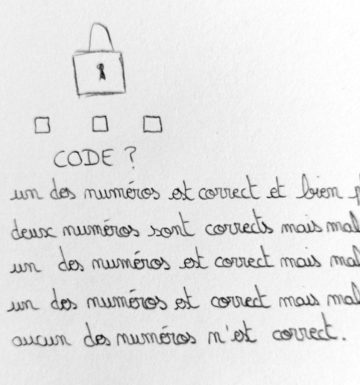 CODE ?
un des numéros est correct et bien
deux numéros sont corrects mais mal
un des numéros est correct mais mal
un des numéros est correct mais mal
aucun des numéros n'est correct.